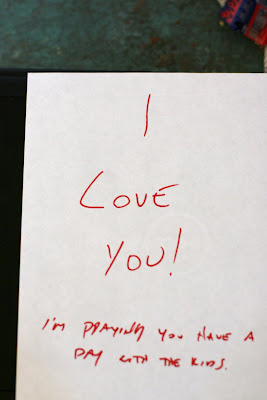 I
LOVE
YOU!
I'M PRAYING YOU HAVE A
DAY WITH THE KIDS.